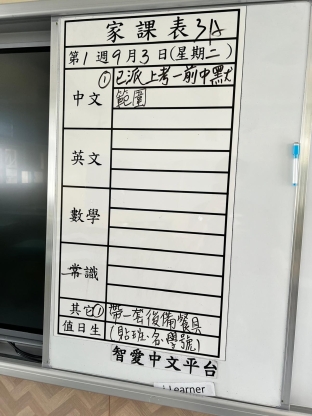 家課表 3A
第1週9月3日(星期二)
中文 ①已派上考一前中默
範圍
英文
數學
常識
其它 ①帶一套後備餐具
值日生 (貼班、名、學號)
智愛中文平台
Learner